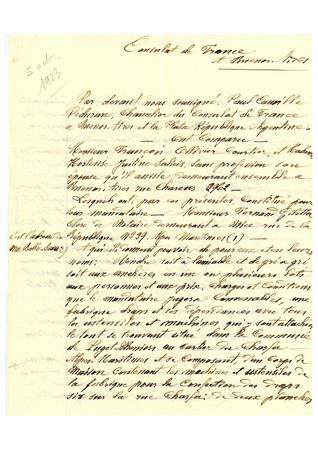 5 oct.
1923
Consulat de France
à Buenos Aires
Par devant nous soussigné, Paul Camille
Chancelier du Consulat de France
à Buenos Aires et la Plata République Argentine
Ont Comparu
Monsieur François Ollivier Courtier, et Madame
Hortense Justine sans profession son
épouse qu'il assiste, demeurant ensemble à
Buenos Aires rue Charcas
Lesquels ont, par ces présentes, Constitué pour
leur mandataire Monsieur Fernand
Clerc de Notaire demeurant à Nice rue de la
République Nº 37 Alpes Maritimes (1)
et qui ils donnent pouvoir de pour eux et en leur
nom: Vendre soit à l'amiable et de gré à gré
soit aux enchères en un ou plusieurs lots
aux personnes et aux prix, charges et conditions
que le mandataire jugera convenables, une
fabrique draps et les dépendances avec tous
les ustensiles et machines qui y sont attachés
le tout se trouvant situé dans la Commune
de Puget-Théniers au cartier du
Alpes-Maritimes et se composant, d'un corps de
Maison contenant les machines et ustensiles de
la fabrique pour la confection des draps
six sur la rue de deux planches